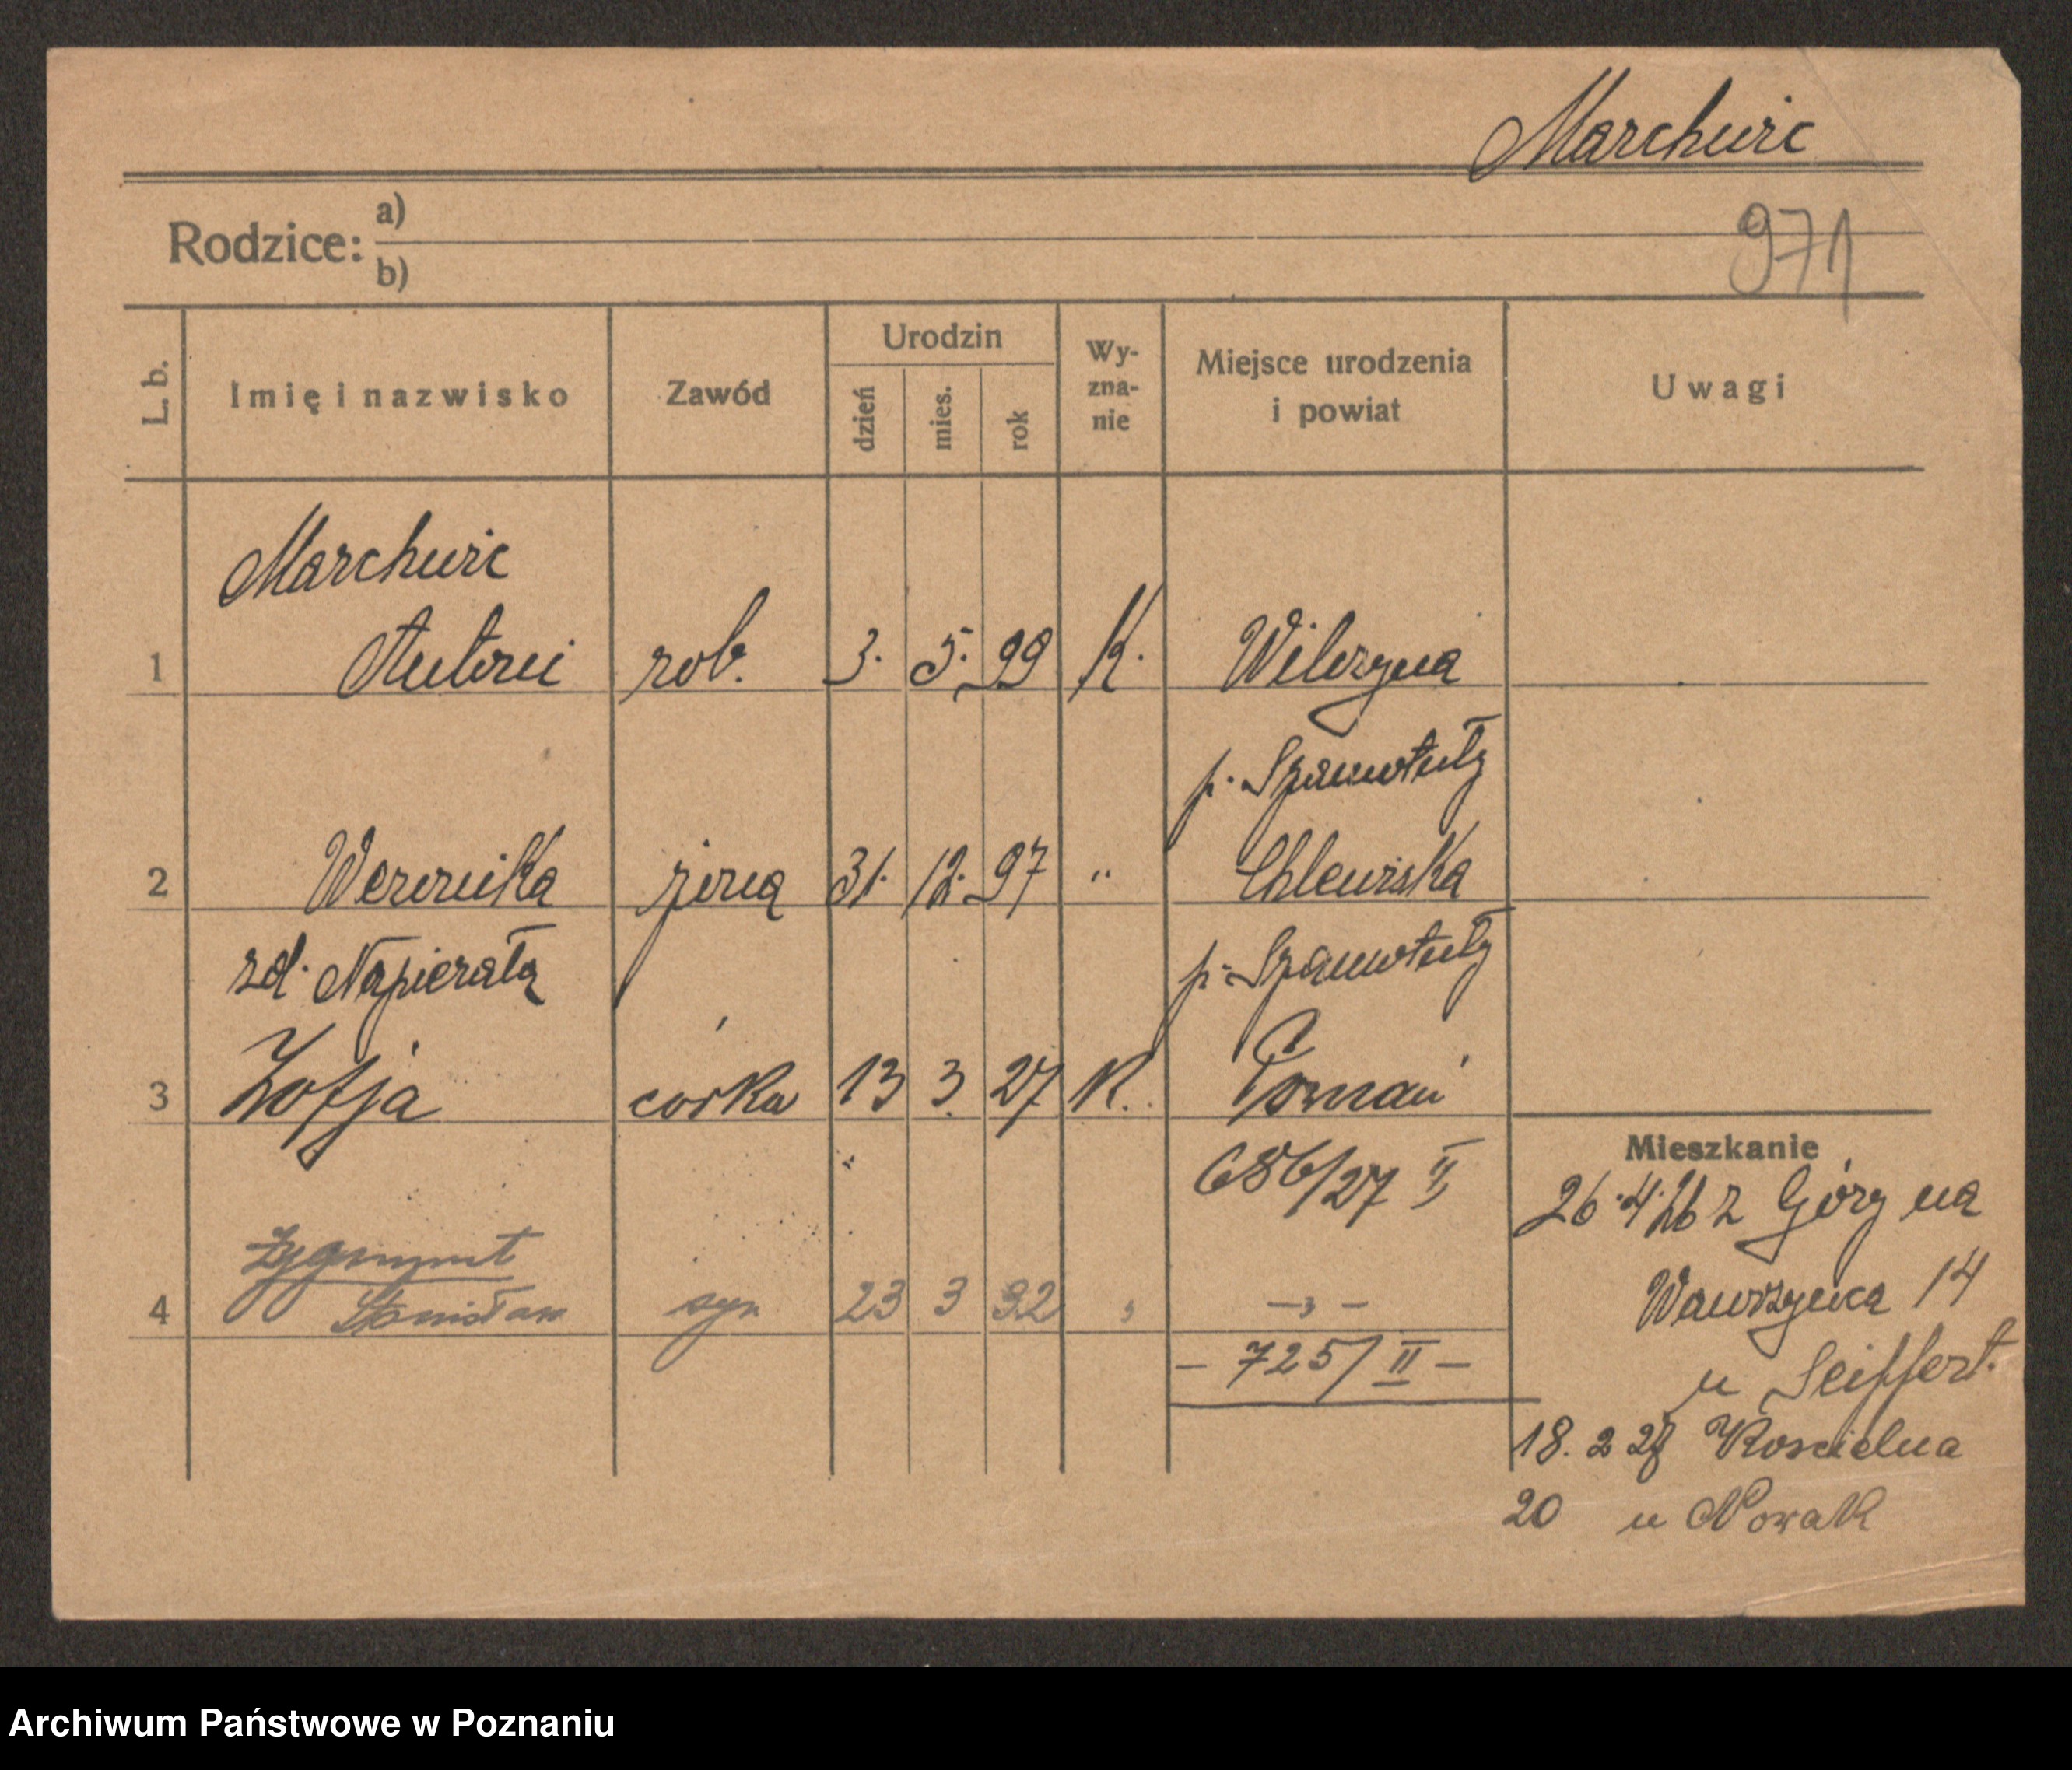 Marchwic
Rodzice: a)
b)
971
L. b. Imię i nazwisko Zawód Urodzin dzień mies. rok Wy-zna-nie Miejsce urodzenia i powiat Uwagi
Marchwic
1 Antoni rob. 3. 5. 99 K. Wilczyna
p. Szamotuły
2 Weronika żona 31. 12. 97 " Chlewiska
zd. Napierała p. Szamotuły
3 Zofja córka 13 3. 27 K. Poznań
686/27 II
Mieszkanie
26.4.26 z Góry na
Wawrzyńca 14
u Seiffert.
18. 2 27 Kościelna
20 u Nowak
Zygmunt
4 Stanisław syn 23 3 32 " — " —
— 725/II —
Archiwum Państwowe w Poznaniu